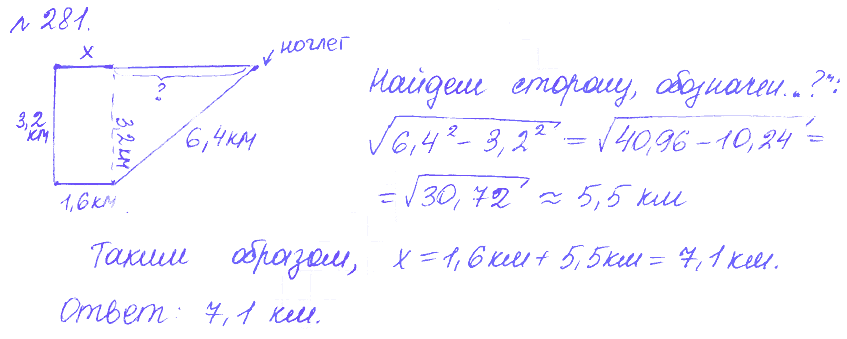 № 281.
x
ночлег
?
3,2 км
3,2 км
6,4 км
1,6 км
Найдем сторону, обозначен. „?“:
√6,4² − 3,2² = √40,96 − 10,24 =
= √30,72 ≈ 5,5 км
Таким образом, x = 1,6 км + 5,5 км = 7,1 км.
Ответ: 7,1 км.